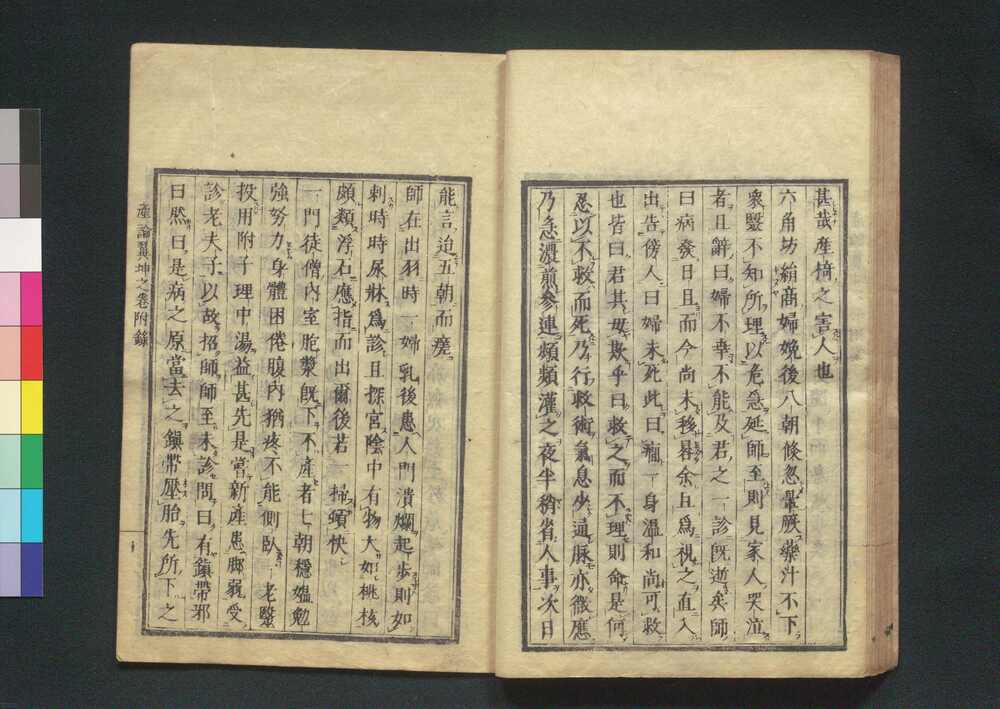 甚哉産椅之害人也
六角坊絹商婦娩後八朝倏忽暈厥藥汁不下
衆毉不知所理以危急延師至則見家人哭泣
者且辭曰婦不幸不能及君之一診既逝矣師
曰病發日且而今尚未移晷余且爲視之直入
出告傍人曰婦未死此曰癇一身溫和尚可救
也皆曰君其毋欺乎曰救之而不理則命是何
忍以不救而死乃行救術氣息少通脉亦微應
乃急濃煎參連頻頻灌之夜半稍省人事次日
能言迨五朝而瘳
師在出羽時一婦乳後患人門潰爛起歩則如
刺時時尿牀爲診且探宮陰中有物大如桃核
頗類浮石應指而出爾後若一掃頓快
一門徒僧内室胞漿既下不產者七朝穩媼勉
強努力身體困倦腹内猶疼不能側臥老毉
投用附子理中湯益甚先是嘗新產患脚弱受
診老夫子以故招師師至未診問曰有鎭帶邪
曰然曰是病之原當去之鎭帶壓胎先所下之
產論翼坤之卷附錄